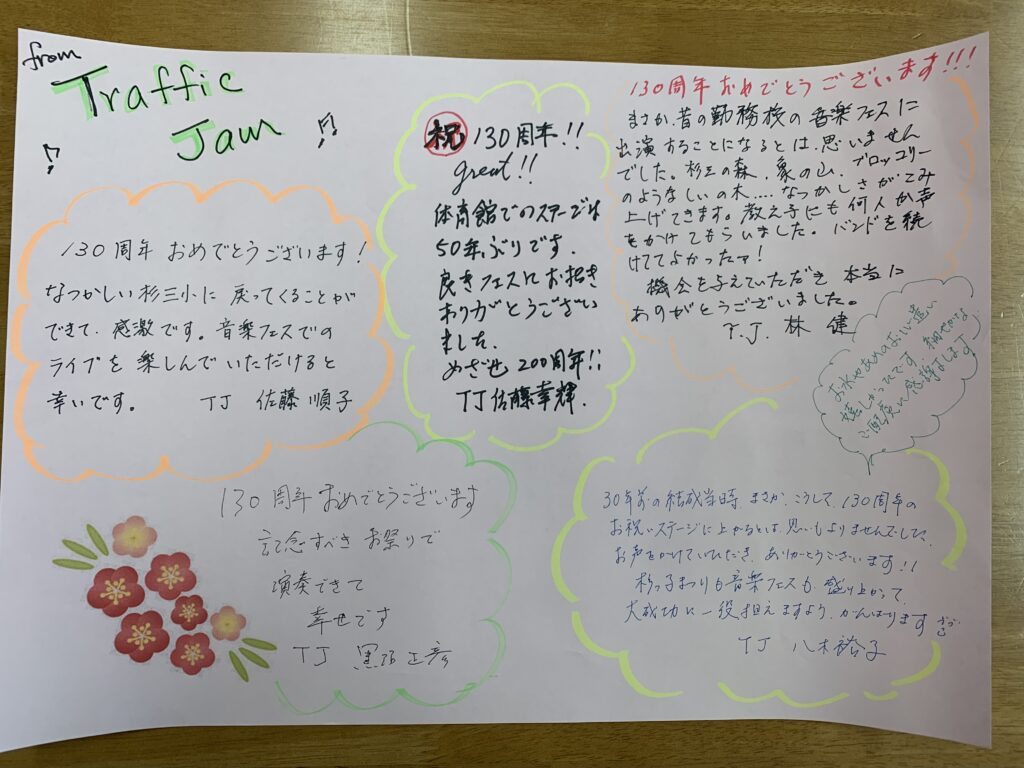 from
Traffic
Jam
130周年 おめでとうございます!
なつかしい杉三小に戻ってくることが
できて、感激です。音楽フェスでの
ライブを楽しんでいただけると
幸いです。 TJ 佐藤順子
祝 130周年!!
great!!
体育館でのステージは
50年ぶりです.
良きフェスにお招き
ありがとうござい
ました.
めざせ 200周年!!
TJ 佐藤幸輝.
130周年おめでとうございます!!!
まさか、昔の勤務校の音楽フェスに
出演することになるとは、思いません
でした。杉三の森、象の山、ブロッコリー
のようなしいの木....なつかしさがこみ
上げてきます。教え子にも何人か声
をかけてもらいました。バンドを続
けててよかったァ!
機会を与えていただき 本当に
ありがとうございました。
T.J. 林 健
お水やあめのお心遣い
嬉しゅうございです 細やかな
ご配慮に感謝致します
130周年おめでとうございます
記念すべきお祭りで
演奏できて
幸せです
TJ 正彦
30年前の結成当時、まさか、こうして、130周年の
お祝いステージに上がるとは、思いもよりませんでした。
お声をかけていただき、ありがとうございます!!
杉っ子まつりも音楽フェスも 盛り上がって、
大成功に一役担えますよう、がんばります
TJ 八木裕子